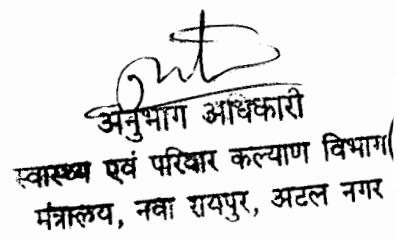 अनुभाग अधिकारी
स्वास्थ्य एवं परिवार कल्याण विभाग(
मंत्रालय, नवा रायपुर, अटल नगर